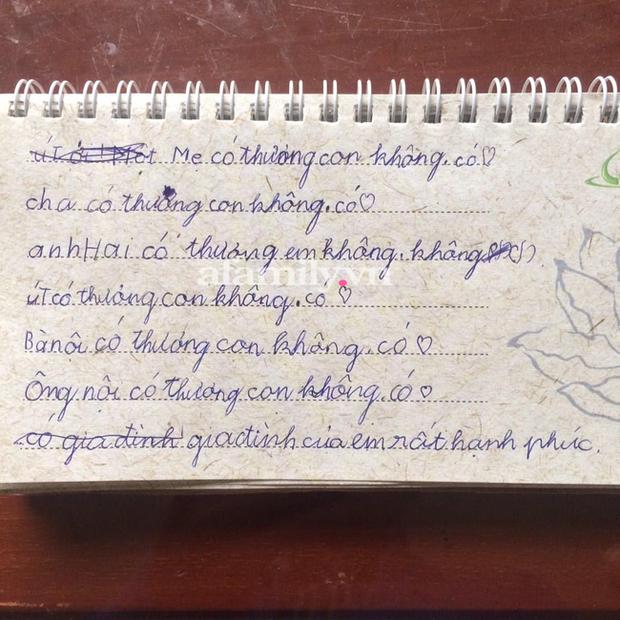 Mẹ có thương con không. có♡
cha có thương con không. có♡
anh Hai có thương em không. không
afamily.vn
út có thương con không. có ♡
Bà nôi có thương con không. có ♡
Ông nội có thương con không. có ♡
có gia đình gia đình của em rất hạnh phúc.